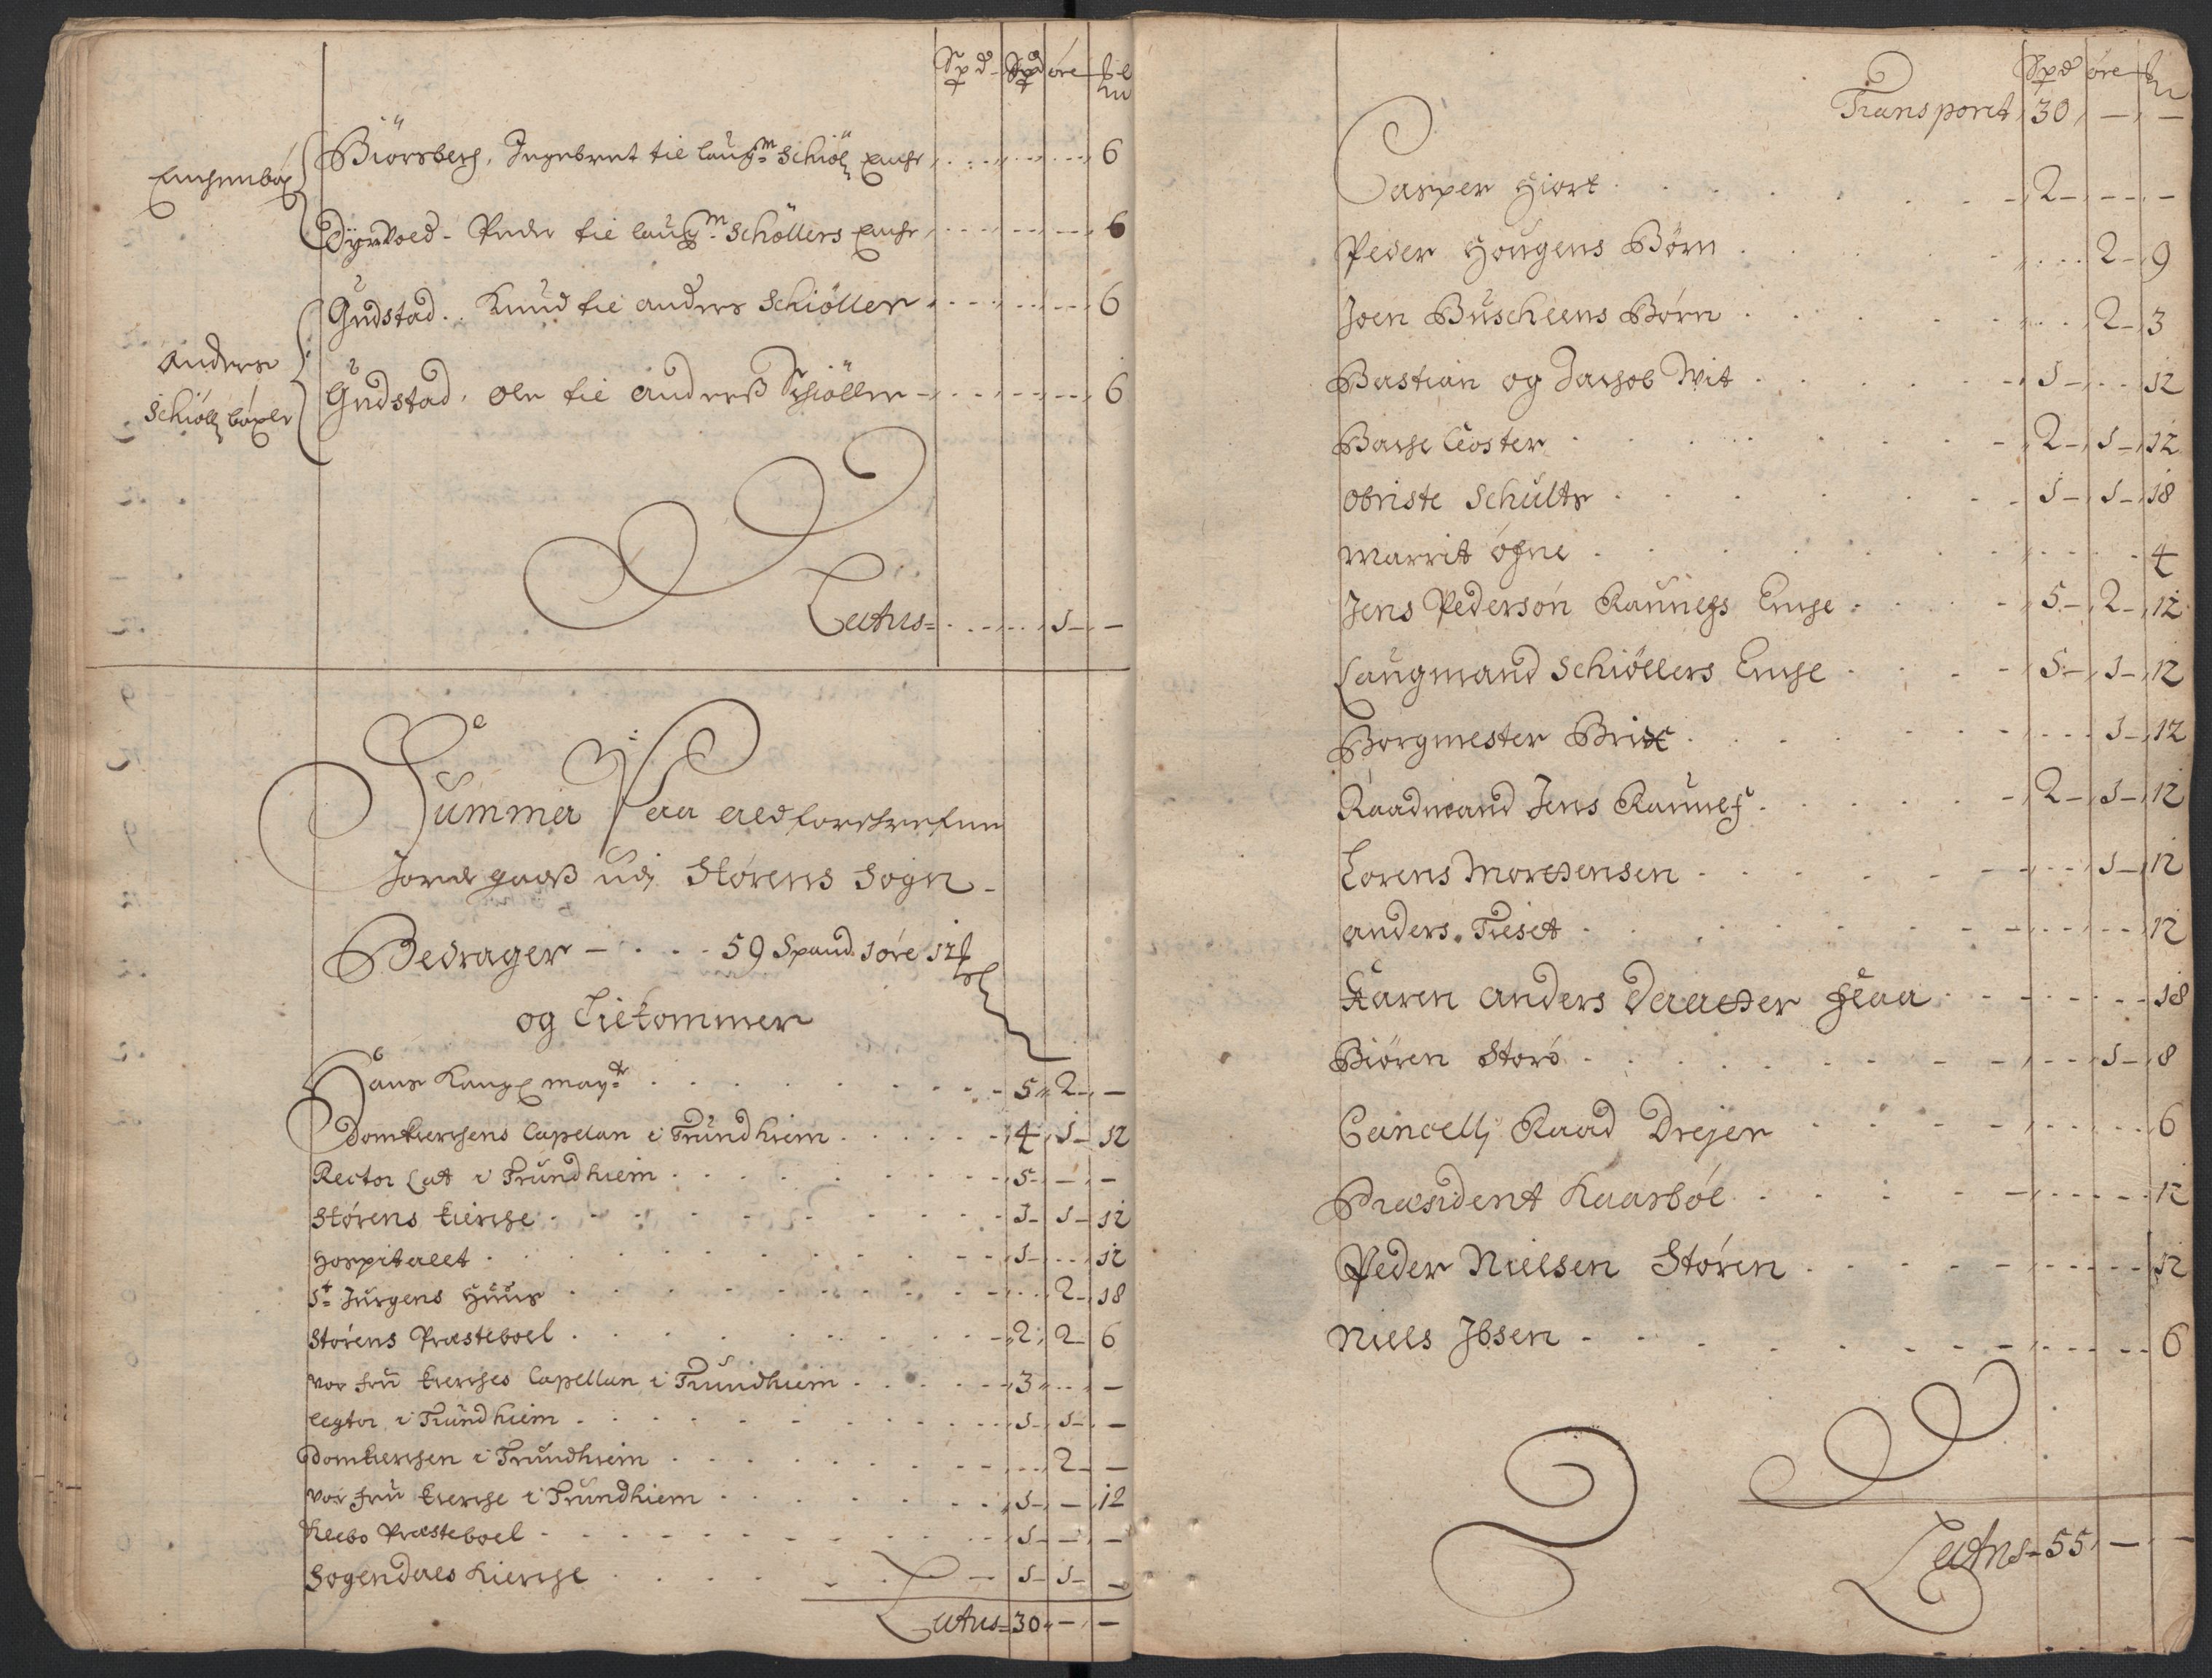 Spd Spd øre
Enchenbøx
Biörsberg, Ingebret til laugm Schiöll Enche 6
Dyrvold - Peder til laugm Schöllers Enche 6
Gudstad. Knud til anders Schiöller 6
Anders
Schiöll bøxle
Gudstad. Ole til anderß Schiöller 6
Latus 1 - -
Summa Paa all forschrefne
Jorde godß udj Størens Sogn -
Bedrager - 59 Spand 1 øre 12
og Tilkommer
Hans Kongl mayt 5 2 -
Domkierchens Capelan i Trundhiem 4 1 12
Rector Lat i Trundhiem 5 - -
Størens kierche 3 1 12
Hospitallet 1 12
St Jürgens Huus 2 18
Størens Præsteboel 2 2 6
vor frü kierches Capellan i Trundhiem 3 -
lector i Trundhiem 1 1 -
Domkierchen i Trundhiem 2 -
vor frü kierche i Trundhiem 1 - 12
Klebo Præsteboel 1 - -
Sogendals Kierche 1 1 -
Latus 30 - -
Spd øre
Transport 30 - -
Casper Hiort 2 - -
Peder Hougens Børn 2 9
Joen Buschlens Børn 2 3
Bastian og Jachob Wit 1 12
Basse Closter 2 1 12
Obriste Schults 1 1 18
Marrit øfne 4
Jens Pedersøn Raunegs Enche 5 2 12
Laugmand Schiöllers Enche 5 1 12
Borgmester Brix 1 12
Raadmand Jens Raunegs 2 1 12
Lorens Mortensen 1 12
anders Tilset 12
Karen anders Daatter Flaa 18
Biören Storø 1 8
Cancellj Raad Drejer 6
Præsident Kaasbøl 12
Peder Nielsen Støren 12
Niels Ibsen 6
Latus 55 - -